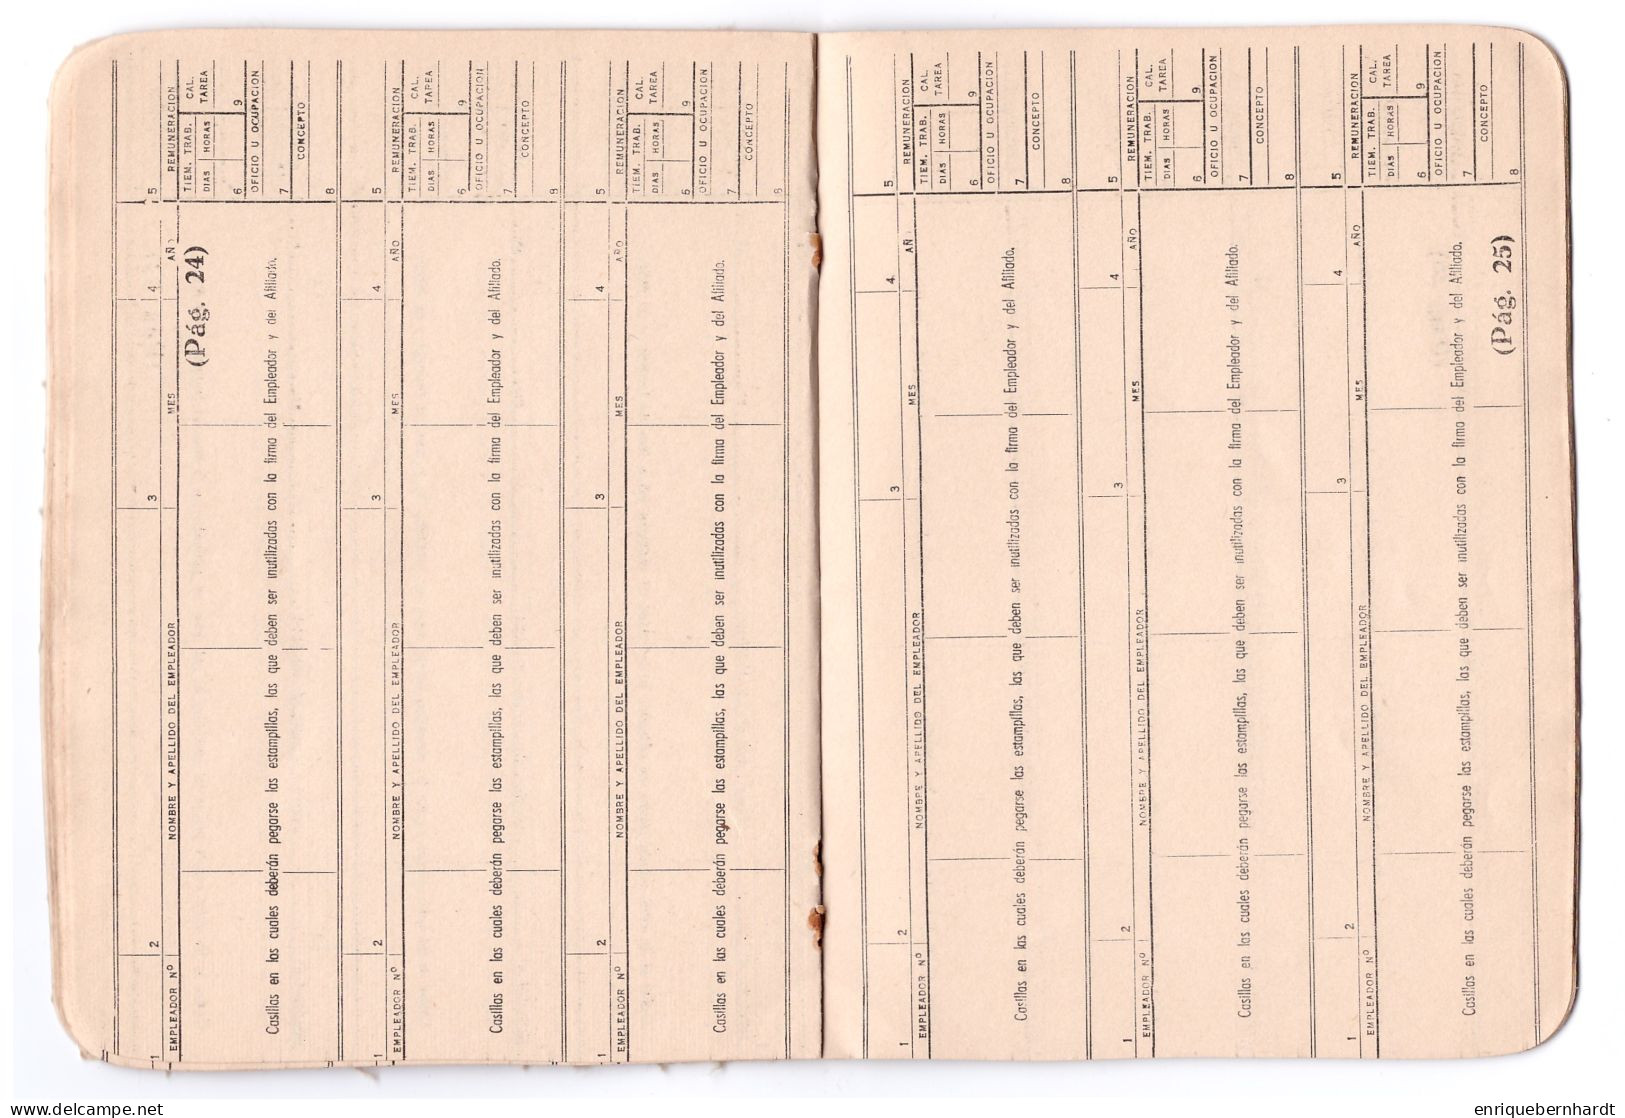 1 2 3 4 5
EMPLEADOR Nº NOMBRE Y APELLIDO DEL EMPLEADOR MES AÑO REMUNERACION
TIEM. TRAB. CAL.
(Pág. 24) DIAS HORAS TAREA
6 9
OFICIO U OCUPACION
Casillas en las cuales deberán pegarse las estampillas, las que deben ser inutilizadas con la firma del Empleador y del Afiliado.
7
CONCEPTO
8
1 2 3 4 5
EMPLEADOR Nº NOMBRE Y APELLIDO DEL EMPLEADOR MES AÑO REMUNERACION
TIEM. TRAB. CAL.
DIAS HORAS TAREA
6 9
OFICIO U OCUPACION
Casillas en las cuales deberán pegarse las estampillas, las que deben ser inutilizadas con la firma del Empleador y del Afiliado.
7
CONCEPTO
8
1 2 3 4 5
EMPLEADOR Nº NOMBRE Y APELLIDO DEL EMPLEADOR MES AÑO REMUNERACION
TIEM. TRAB. CAL.
DIAS HORAS TAREA
6 9
OFICIO U OCUPACION
Casillas en las cuales deberán pegarse las estampillas, las que deben ser inutilizadas con la firma del Empleador y del Afiliado.
7
CONCEPTO
8
1 2 3 4 5
EMPLEADOR Nº NOMBRE Y APELLIDO DEL EMPLEADOR MES AÑ REMUNERACION
TIEM. TRAB. CAL.
DIAS HORAS TAREA
6 9
OFICIO U OCUPACION
Casillas en las cuales deberán pegarse las estampillas, las que deben ser inutilizadas con la firma del Empleador y del Afiliado.
7
CONCEPTO
8
1 2 3 4 5
EMPLEADOR Nº NOMBRE Y APELLIDO DEL EMPLEADOR MES AÑO REMUNERACION
TIEM. TRAB. CAL.
DIAS HORAS TAREA
6 9
OFICIO U OCUPACION
Casillas en las cuales deberán pegarse las estampillas, las que deben ser inutilizadas con la firma del Empleador y del Afiliado.
7
CONCEPTO
8
1 2 3 4 5
EMPLEADOR Nº NOMBRE Y APELLIDO DEL EMPLEADOR MES AÑO REMUNERACION
TIEM. TRAB. CAL.
DIAS HORAS TAREA
6 9
OFICIO U OCUPACION
Casillas en las cuales deberán pegarse las estampillas, las que deben ser inutilizadas con la firma del Empleador y del Afiliado.
7
CONCEPTO
(Pág. 25) 8
delcampe.net
enriquebernhardt